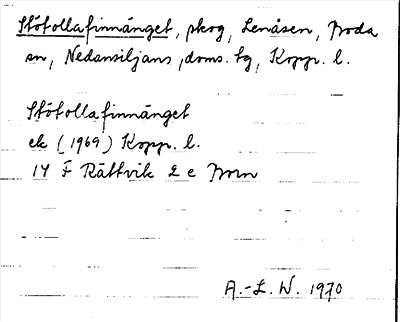 Stötollafinnänget, skog, Lenåsen, Boda
sn, Nedansiljans doms. tg, Kopp. l.
Stötollafinnänget
ek (1969) Kopp. l.
14 F Rättvik 2 e Born
A.-L. W. 1970